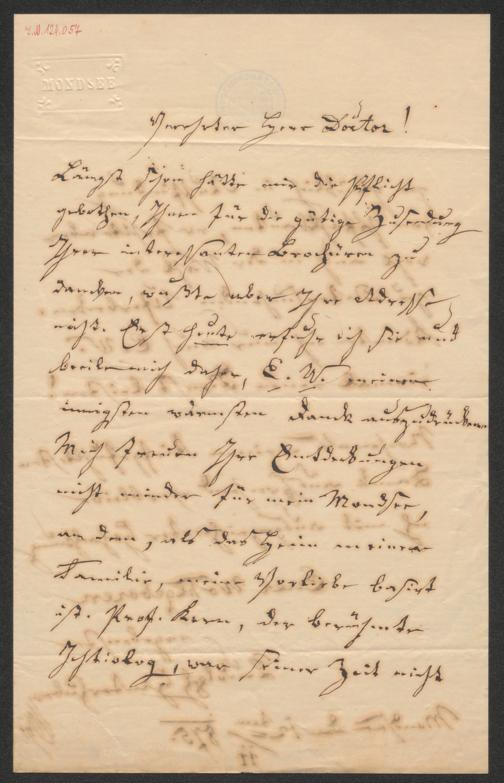 I.N. 124.057
MONDSEE
Verehrter Herr Doctor!
Längst schon hätte mir die Pflicht
gebothen, Ihnen für die gütige Zusendung
Ihrer interessanten Brochüren zu
danken, wußte aber Ihre Adresse
nicht. Erst heute erfuhr ich sie und
beeile mich daher, E. W. meinen
innigsten wärmsten Dank auszudrücken.
Mich freuen Ihre Entdeckungen
nicht minder für mein Mondsee,
an dem, als das Heim meiner
Familie, meine Vorliebe basirt
ist. Prof. Kern, der berühmte
Ichtiolog, war seiner Zeit nicht